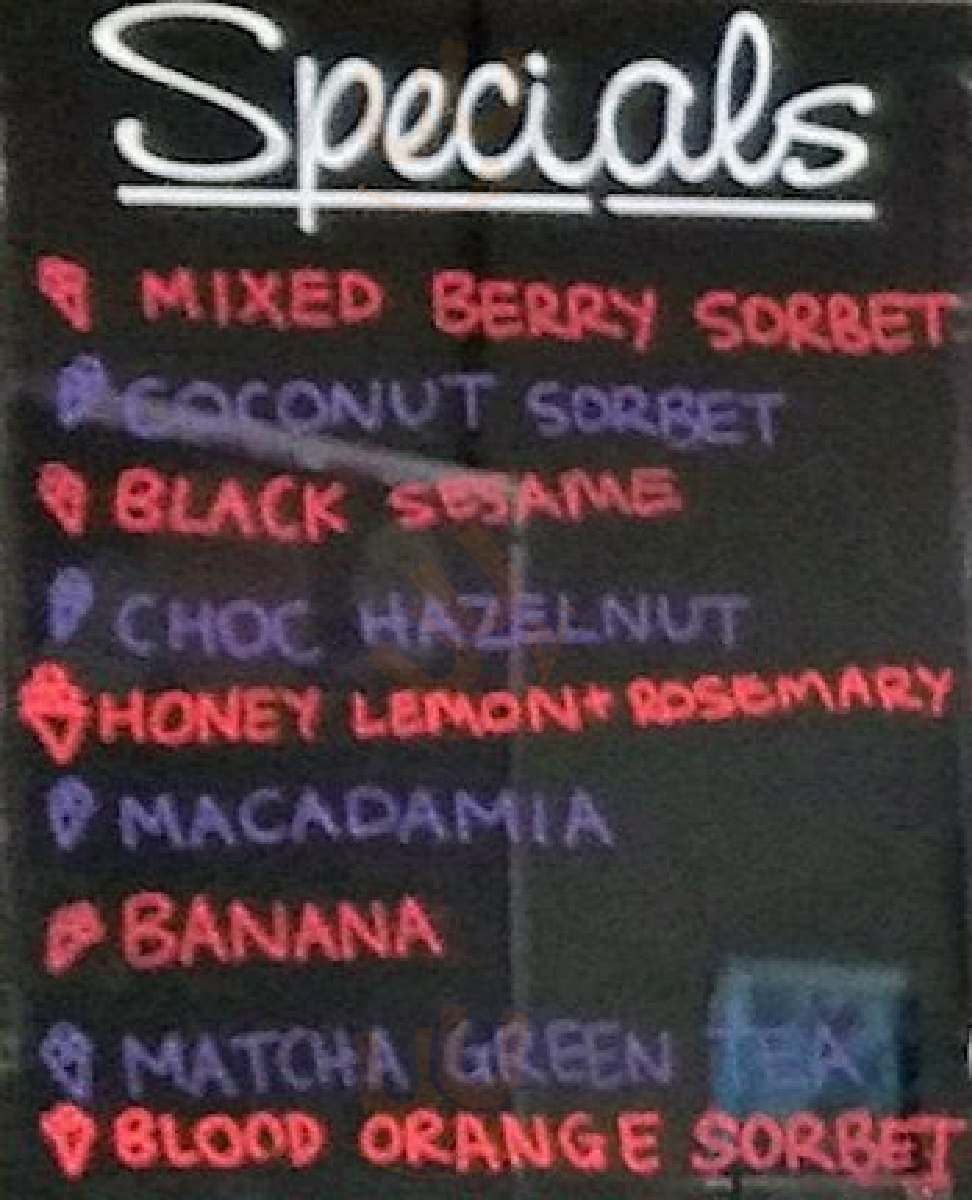 Specials
MIXED BERRY SORBET
COCONUT SORBET
BLACK SESAME
CHOC HAZELNUT
HONEY LEMON+ ROSEMARY
MACADAMIA
BANANA
MATCHA GREEN TEA
BLOOD ORANGE SORBET